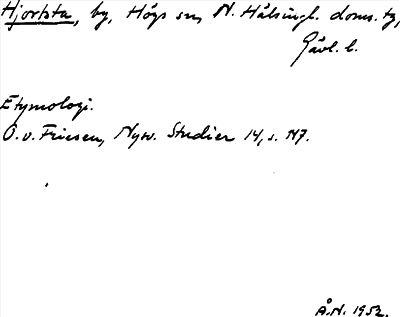 Hjortsta, by, Högs sn, N. Hälsingl. doms. tg,
Gävl. l.
Etymologi.
O. v. Friesen, Nysv. Studier 14, s. 117.
Å.N. 1952.